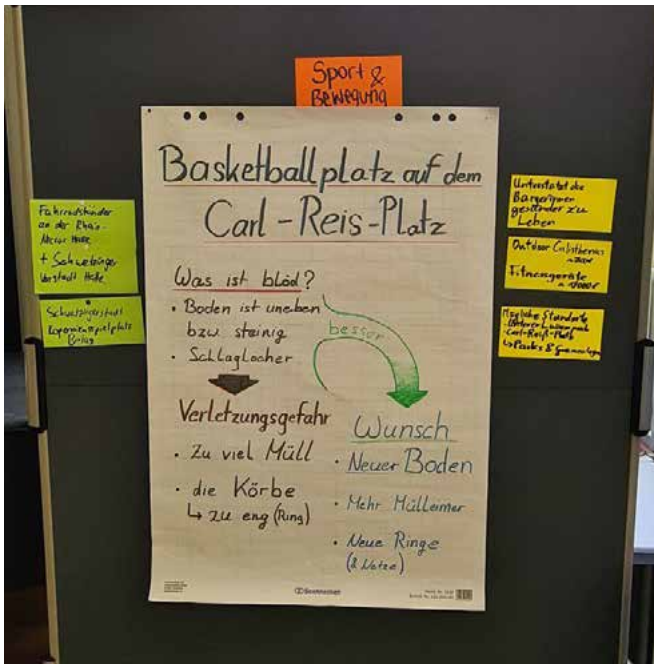 Sport &
Bewegung
Basketballplatz auf dem
Carl-Reis-Platz
Was ist blöd?
• Boden ist uneben
bzw steinig
• Schlaglöcher
besser
Verletzungsgefahr
• Zu viel Müll
• die Körbe
↳ zu eng (Ring)
Wunsch
• Neuer Boden
• Mehr Mülleimer
• Neue Ringe
(& Netze)
Fahrradständer
an der Rhein-
Neckar Halle
+ Schwetzinger
Vorstadt Halle
Unterstützt die
Bürgerinnen
gesünder zu
Leben
Outdoor Calisthenics
Fitnessgeräte
Mögliche Standorte
Unterer Luisenpark
Carl-Reiß-Platz
↳ Parks &